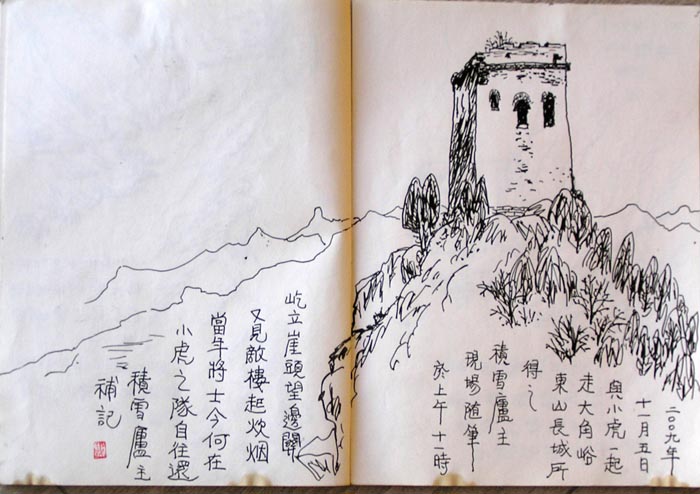 二〇〇九年
十一月五日
與小虎一起
走大角峪
東山長城所
得之
積雪廬主
現場随筆
於上午十一時
屹立崖頭望邊關
又見敵樓起炊烟
當年將士今何在
小虎之隊自往還
積雪廬主
補記